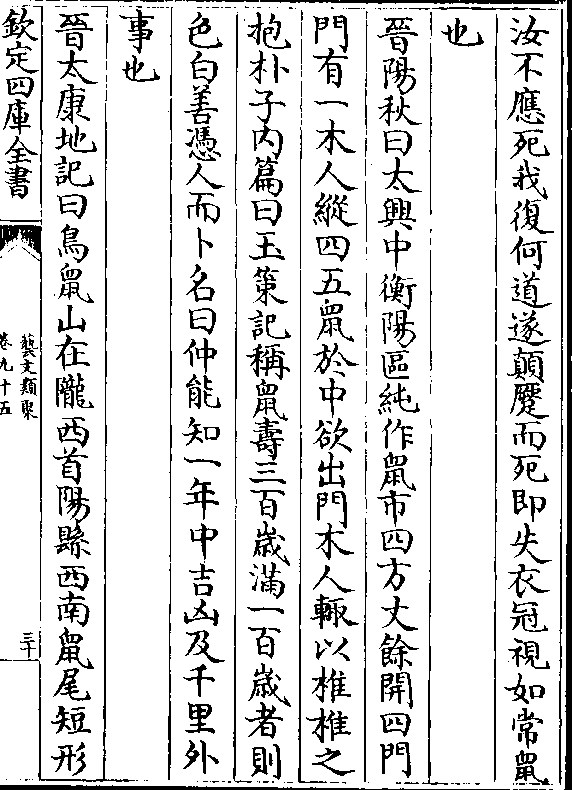 汝不應死我復何道遂顛蹷而死即失衣冠視如常鼠
也
晉陽秋曰太興中衡陽區純作鼠市四方丈餘開四門
門有一木人縱四五鼠於中欲出門木人輙以椎椎之
抱朴子内篇曰玉策記稱鼠壽三百歳滿一百歳者則
色白善憑人而卜名曰仲能知一年中吉凶及千里外
事也
晉太康地記曰鳥鼠山在隴西首陽縣西南鼠尾短形
欽定四庫全書
藝文類聚
卷九十五
三十